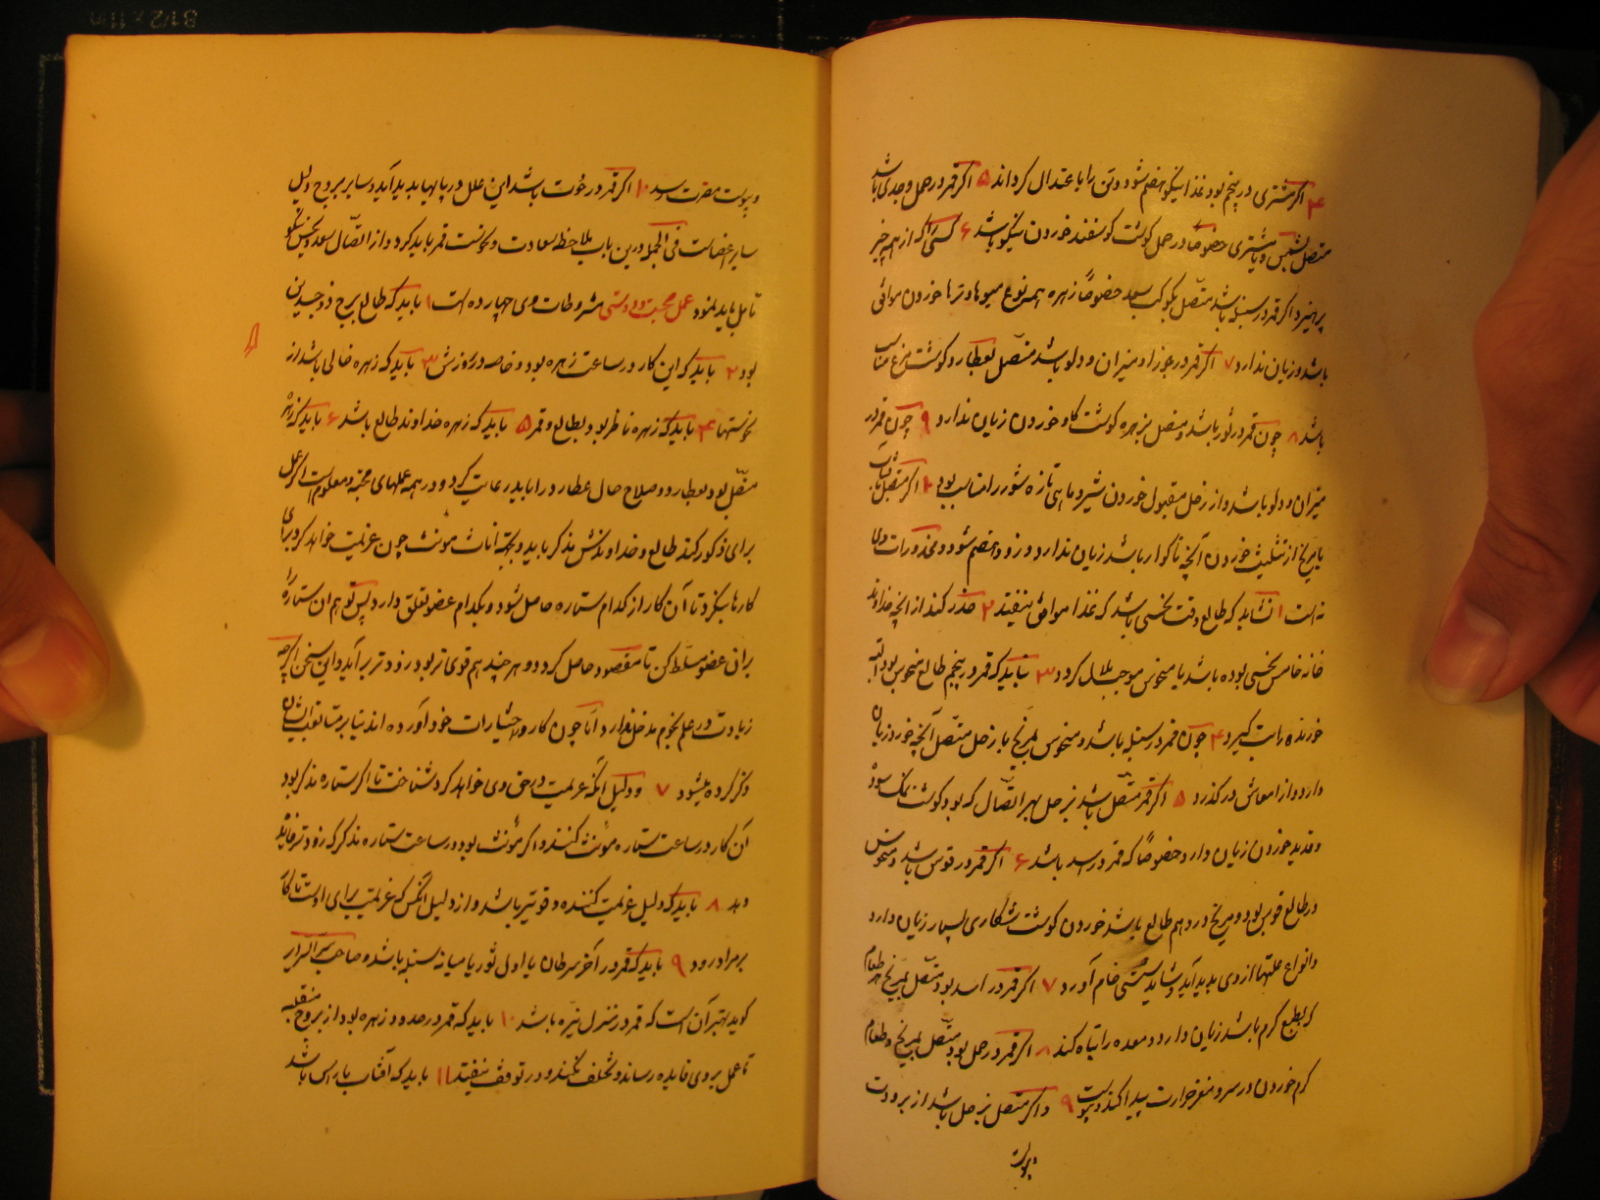 ۴ اگر مشتری در پنجم بود غذا نیکو هضم شود و تن را باعتدال گرداند ۵ اگر قمر در حمل و جدی باشد
متصل بشمس و یا مشتری خصوصا در حمل گوشت گوسفند خوردن نیکو باشد ۶ کسی را که از همه چیز
پرهیزد اگر قمر در سنبله باشد متصل بکوکب سعد خصوصاً زهره همه نوع میوهاء تر را خوردن موافق
باشد و زیان ندارد ۷ اگر قمر در جوزا و میزان و دلو باشد متصل بعطارد گوشت مرغ مناسب
باشد ۸ چون قمر در ثور باشد و متصل بزهره گوشت گاو خوردن زیان ندارد ۹ چون قمر در
میزان و دلو باشد و از زحل مقبول خوردن شیر و ماهی تازه شور را مناسب بود ۱۰ اگر متصل باشد
با مریخ از تثلیث خوردن آنچه ناگوار باشد زیان ندارد و زود هضم شود و محذورات وی
نه است ۱ نشاید که طالع وقت نحسی باشد که غذا موافق نیفتد ۲ حذر کند از آنچه خداوند
خانه خامس نحسی بوده باشد یا منحوس موجب ملال گردد ۳ نباید که قمر در پنجم طالع منحوس بود البته
خورنده را تب گیرد ۴ چون قمر در سنبله باشد و منحوس بمریخ یا زحل متصل آنچه خورد زیان
دارد و از امعاش در گذرد ۵ اگر قمر متصل باشد بزحل بهر اتصال که بود گوشت نمک سود
و قدید خوردن زیان دارد خصوصاً که قمر در اسد باشد ۶ اگر قمر در قوس باشد و منحوس
در طالع قوس بود و مریخ در دهم طالع باشد خوردن گوشت شکاری بسیار زیان دارد
و انواع علتها از وی پدید آید و شاید سستی خام آورد ۷ اگر قمر در اسد بود متصل بمریخ هر طعام
که بطبع گرم باشد زیان دارد و معده را تباه کند ۸ اگر قمر در حمل بود متصل بمریخ و طعام
گرم خوردن در سر و مغز حرارت پیدا کند و یبوست ۹ و اگر متصل بزحل باشد از برودت
و یبوست
و یبوست مضرت رسد ۱۰ اگر قمر در حوت باشد این علل در پایها پدید آید و سایر بروج دلیل
سایر اعضاست فی الجمله درین باب ملاحظه سعادت و نحوست قمر باید کرد و از اتصال سعد و نحس نیکو
تامل باید نمود عمل محبت و دوستی مشروطات وی چهارده است ۱ باید که طالع برج ذو جسدین
بود ۲ باید که این کار در ساعت زهره بود و خاصه در روزش ۳ باید که زهره خالی باشد از
نحوستها ۴ باید که زهره ناظر بود بطالع و قمر ۵ باید که زهره خداوند طالع باشد ۶ باید که زهره
متصل بود بعطارد و صلاح حال عطارد را باید رعایت کرد و در همه عملهای محبت معلوم است اگر عمل
برای ذکور کند طالع و خداوندش مذکر باید و بجهة اناث مونث چون عزیمت خواهد کرد برای
کارها بنگرد تا آن کار از کدام ستاره حاصل شود و بکدام عضو تعلق دارد پس تو هم ان ستاره را
بران عضو مسلط کن تا مقصود حاصل گردد و هر چند هم قوی تر بود زود تر بر آید و این سخن اگر چه
زیادت در علم نجوم مدخل ندارد اما چون کار و اختیارات خود آورده اند بنا بر متابعت ایشان
ذکر کرده میشود ۷ و دلیل آنکه عزیمت در حق وی خواهد کرد شناخت تا اگر ستاره مذکر بود
آن کار در ساعت ستاره مونث کنند و اگر مونث بود در ساعت ستاره مذکر که زود تر فایده
دهد ۸ باید که دلیل عزیمت کننده قوی تر باشد از دلیل آنکس که عزیمت برای اوست تا کار
بر مراد رود ۹ باید که قمر در آخر سرطان یا اول ثور یا میانه سنبله باشد و صاحب سرّ السرایر
گوید بهتر آن است که قمر در منزل نثره باشد ۱۰ باید که قمر در حدود زهره بود از بروج منقلبه
تا عمل بروی فایده رساند و تخلف نکند و در توقف نیفتد ۱۱ باید که آفتاب با راس باشد